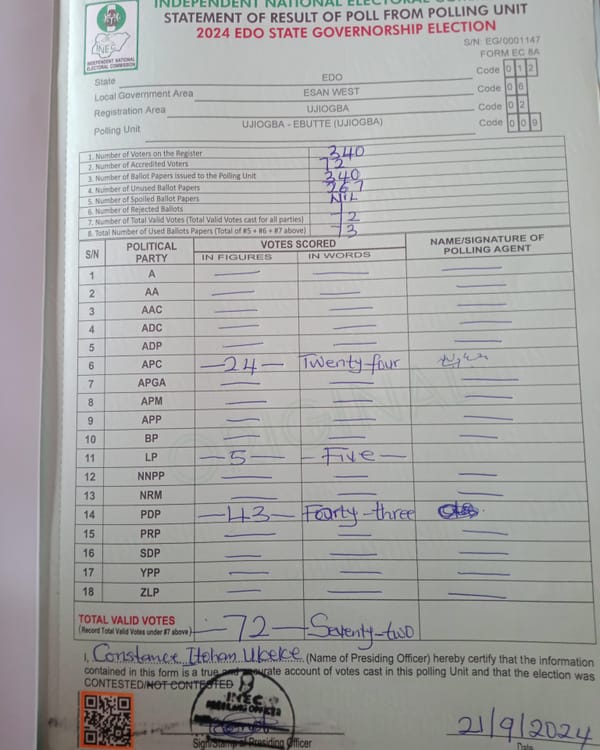 INDEPENDENT NATIONAL ELECTORAL
STATEMENT OF RESULT OF POLL FROM POLLING UNIT
2024 EDO STATE GOVERNORSHIP ELECTION
INEC
INDEPENDENT NATIONAL
ELECTORAL COMMISSION
S/N: EG/0001147
FORM EC 8A
State EDO Code 0 1 2
Local Government Area ESAN WEST Code 0 6
Registration Area UJIOGBA Code 0 2
Polling Unit UJIOGBA - EBUTTE (UJIOGBA) Code 0 0 9
1. Number of Voters on the Register 340
2. Number of Accredited Voters 72
3. Number of Ballot Papers issued to the Polling Unit 340
4. Number of Unused Ballot Papers 267
5. Number of Spoiled Ballot Papers NIL
6. Number of Rejected Ballots
7. Number of Total Valid Votes (Total Valid Votes cast for all parties) 72
8. Total Number of Used Ballots Papers (Total of #5 + #6 + #7 above) 73
S/N POLITICAL PARTY VOTES SCORED NAME/SIGNATURE OF POLLING AGENT
IN FIGURES IN WORDS
1 A — — —
2 AA — — —
3 AAC — — —
4 ADC — — —
5 ADP — — —
6 APC —24— Twenty-four
7 APGA — — —
8 APM — — —
9 APP — — —
10 BP — — —
11 LP —5— —Five— —
12 NNPP — — —
13 NRM — — —
14 PDP —43— Fourty-three
15 PRP — — —
16 SDP — — —
17 YPP — — —
18 ZLP — — —
ORIGINAL
TOTAL VALID VOTES —72— Seventy-two
(Record Total Valid Votes under #7 above)
I, Constance Itohan Ukeke (Name of Presiding Officer) hereby certify that the information
contained in this form is a true and accurate account of votes cast in this polling Unit and that the election was
CONTESTED/NOT CONTESTED
INEC
PRESIDING OFFICER
Sign/Stamp of Presiding Officer
21/9/2024
Date